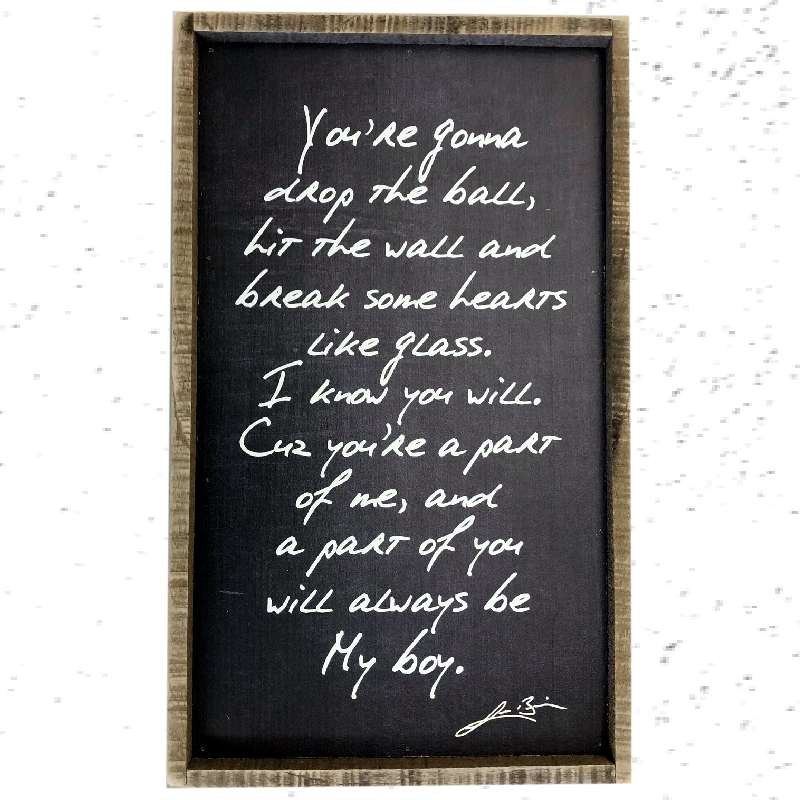 You're gonna
drop the ball,
hit the wall and
break some hearts
like glass.
I know you will.
Cuz you're a part
of me, and
a part of you
will always be
My boy.